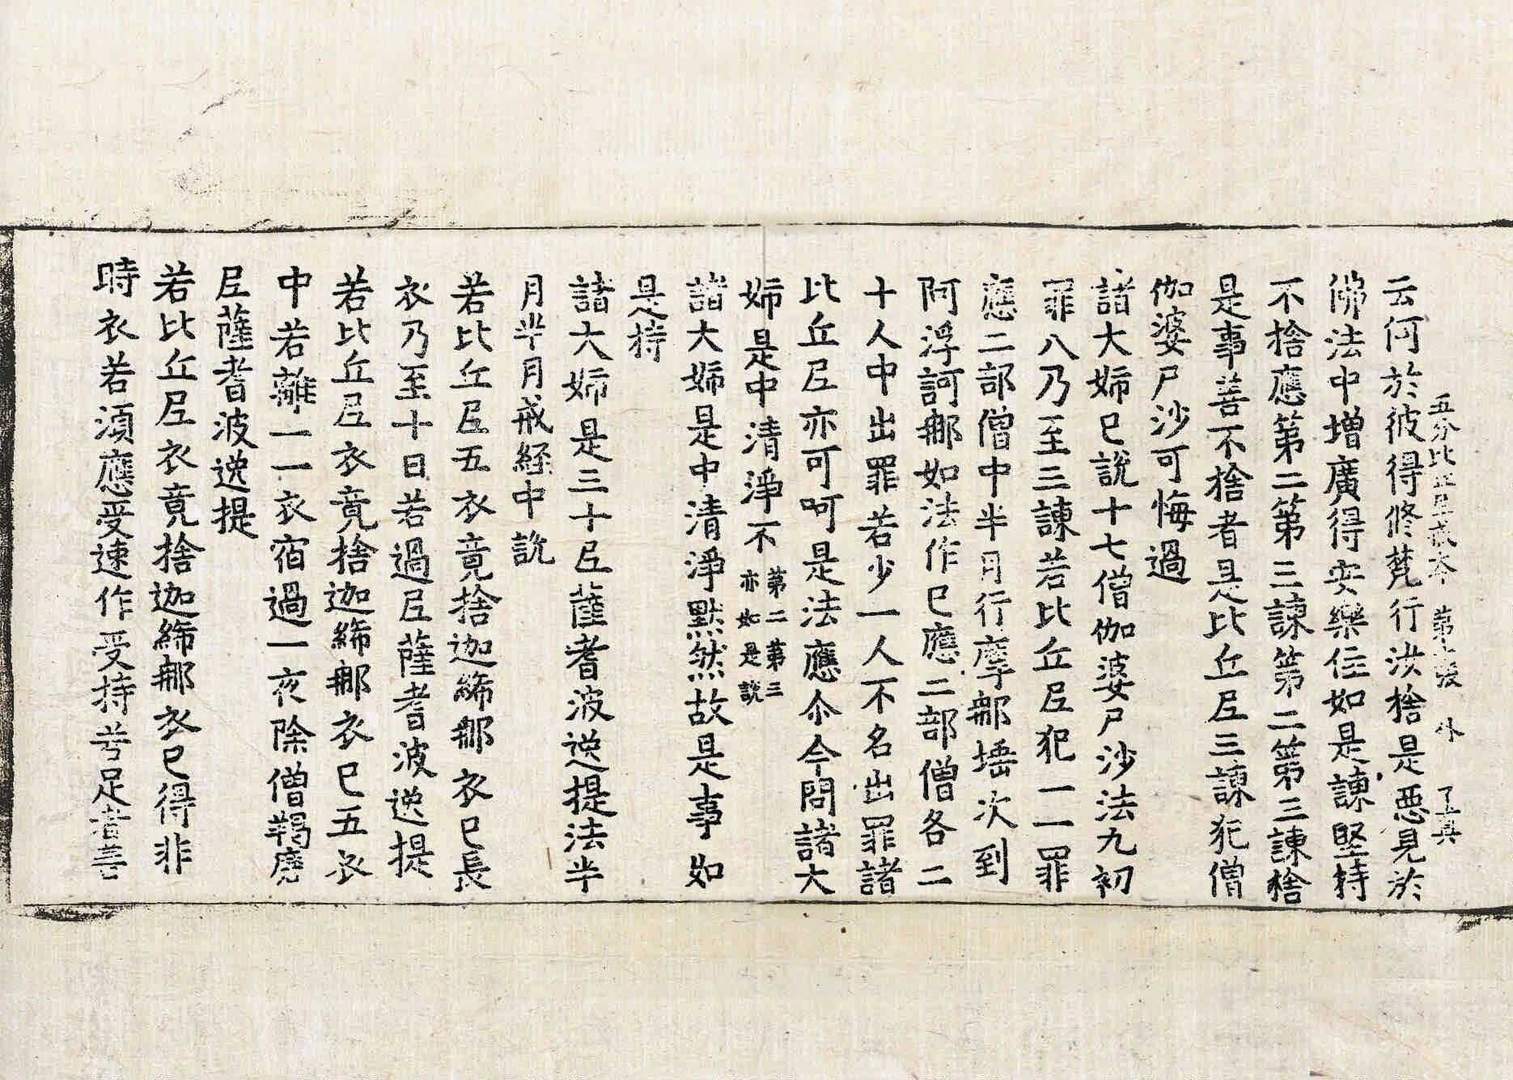 五分比丘尼戒本 第十張 外 丁真
云何於彼得修梵行汝捨是惡見於
佛法中增廣得安樂住如是諫堅持
不捨應第二第三諫第二第三諫捨
是事善不捨者是比丘尼三諫犯僧
伽婆尸沙可悔過
諸大姊已說十七僧伽婆尸沙法九初
罪八乃至三諫若比丘尼犯一一罪
應二部僧中半月行摩那埵次到
阿浮訶那如法作已應二部僧各二
十人中出罪若少一人不名出罪諸
比丘尼亦可呵是法應尒今問諸大
姊是中清淨不 第二第三亦如是說
諸大姊是中清淨默然故是事如
是持
諸大姊是三十尼薩耆波逸提法半
月半月戒經中說
若比丘尼五衣竟捨迦絺那衣已長
衣乃至十日若過尼薩耆波逸提
若比丘尼衣竟捨迦絺那衣已五衣
中若離一一衣宿過一夜除僧羯磨
尼薩耆波逸提
若比丘尼衣竟捨迦絺那衣已得非
時衣若須應受速作受持若足者善